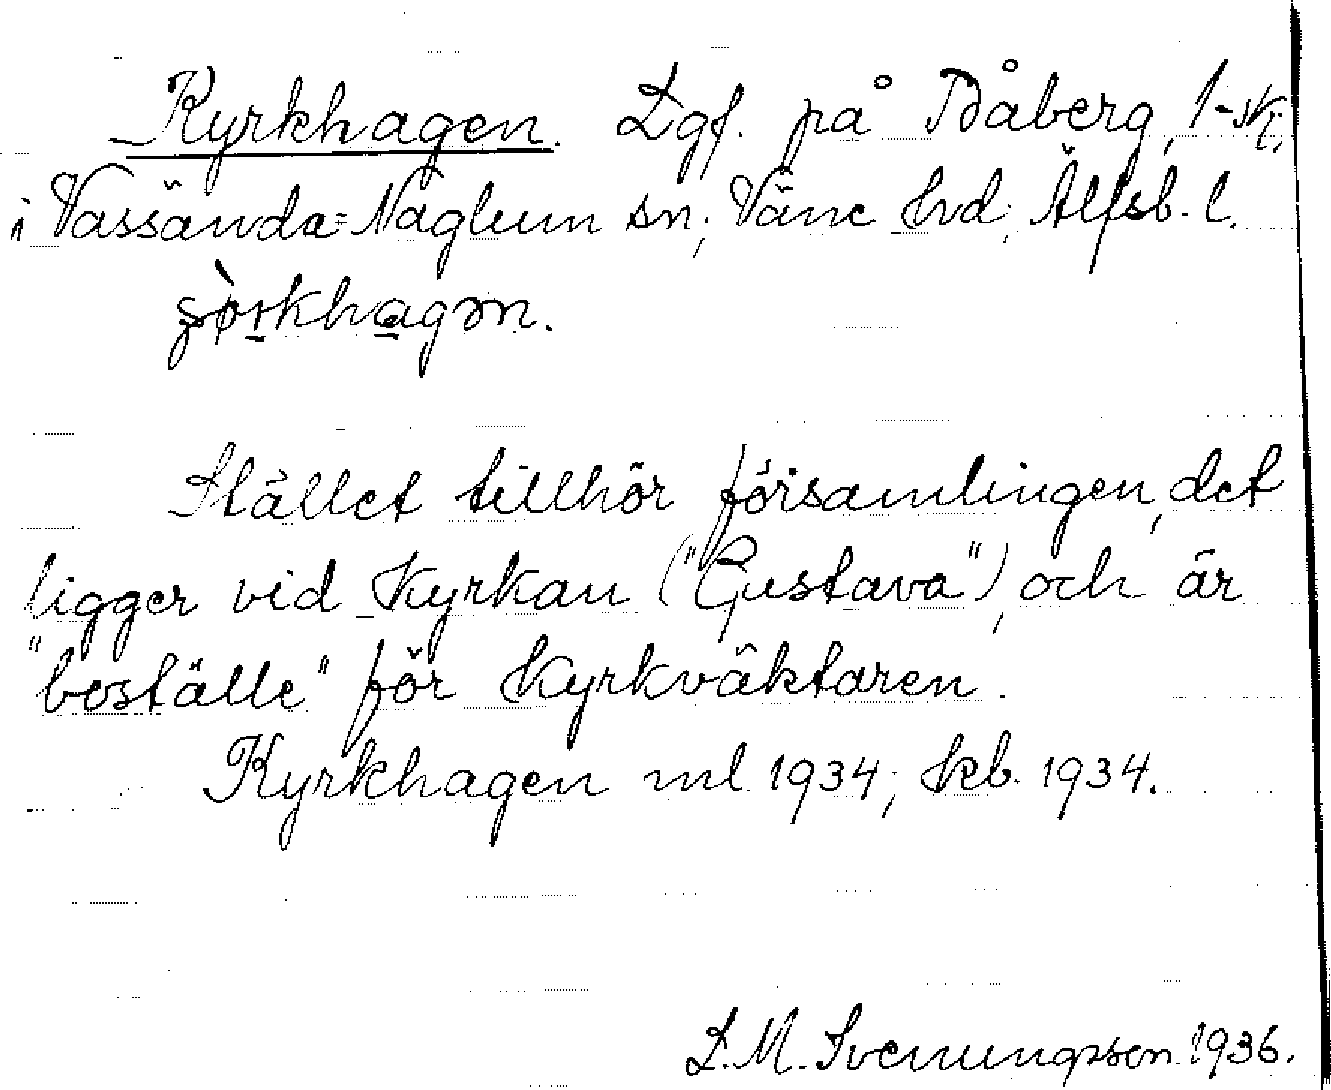 Kyrkhagen. Lgf. på Båberg, 1-
i Vassända=Naglum sn; Väne hd, Älfsb. l.
Stället tillhör församlingen, det
ligger vid Kyrkan ("Gustava"), och är
"boställe" för Kyrkväktaren.
Kyrkhagen ml 1934; kb. 1934.
L. M. Svenungsson 1936.